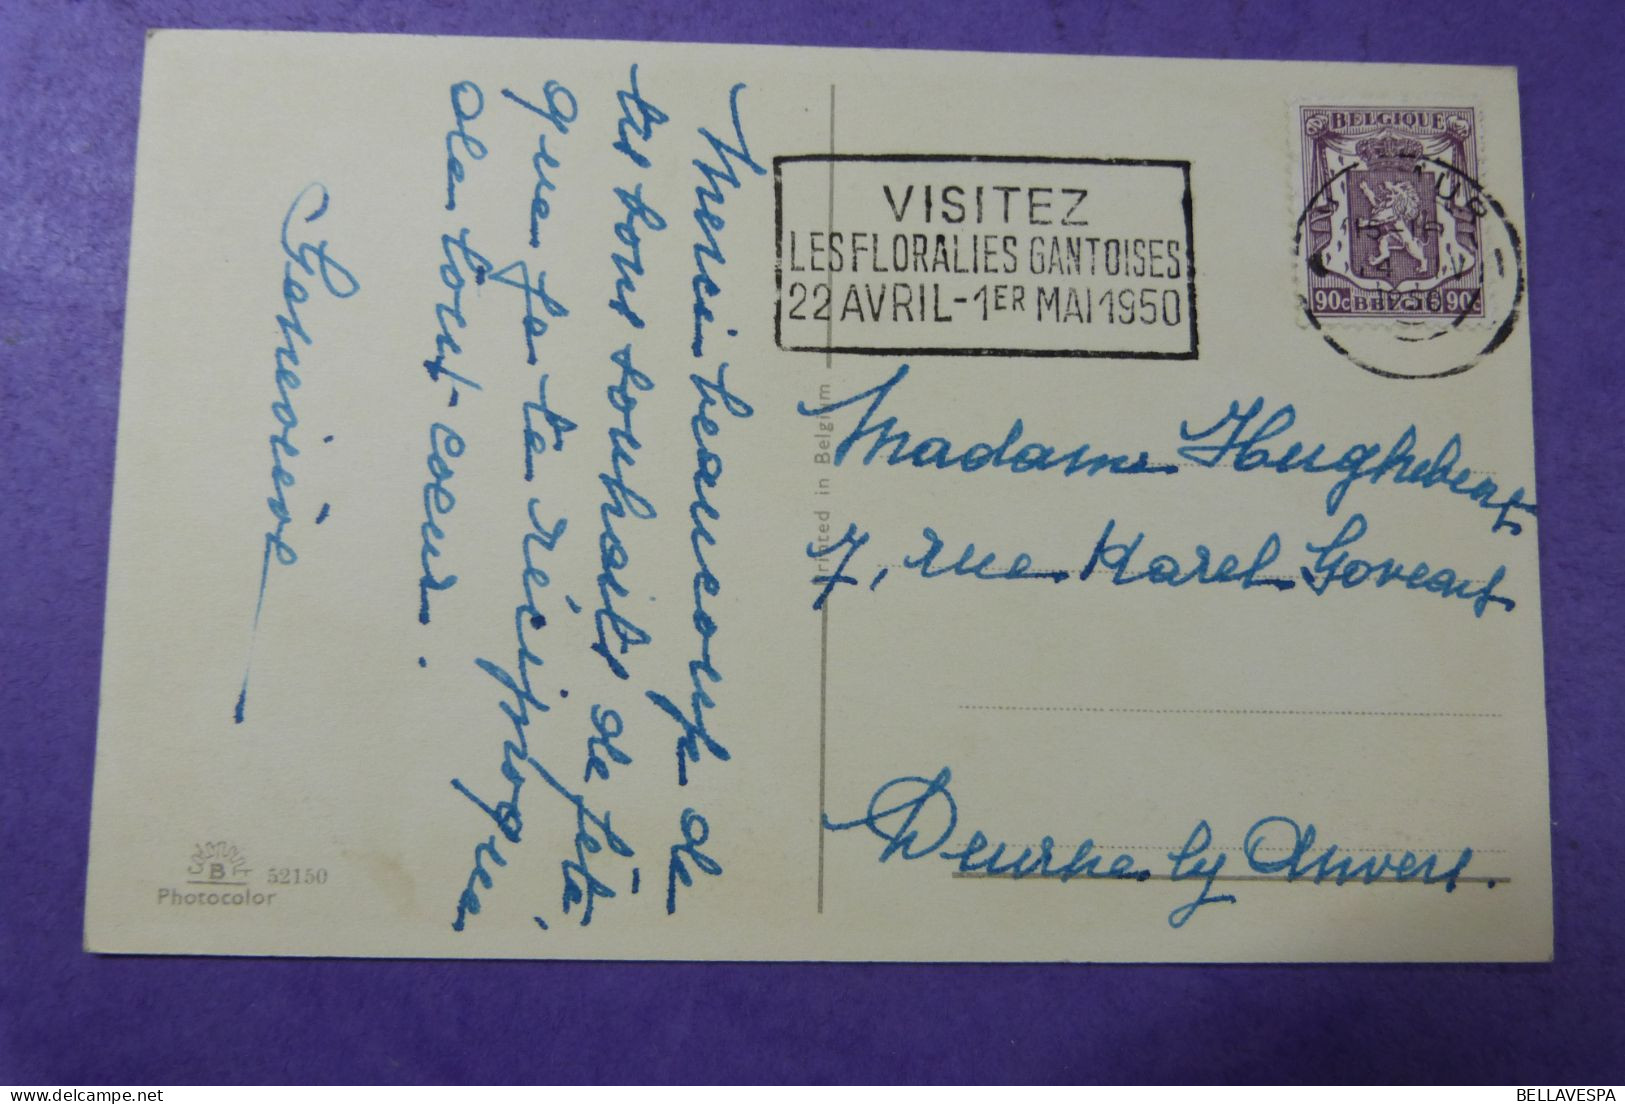 Merci beaucoup de
tes bons souhaits de fête
que je te réciproque
de tout coeur.
Geneviève
VISITEZ
LES FLORALIES GANTOISES
22 AVRIL - 1ER MAI 1950
BELGIQUE
90c BELGIË 90c
15-16
1950
Printed in Belgium
Madame Hughebaert
7, rue Karel Govaert
Deurne ly Anvers.
B
52150
Photocolor
BELLAVESPA